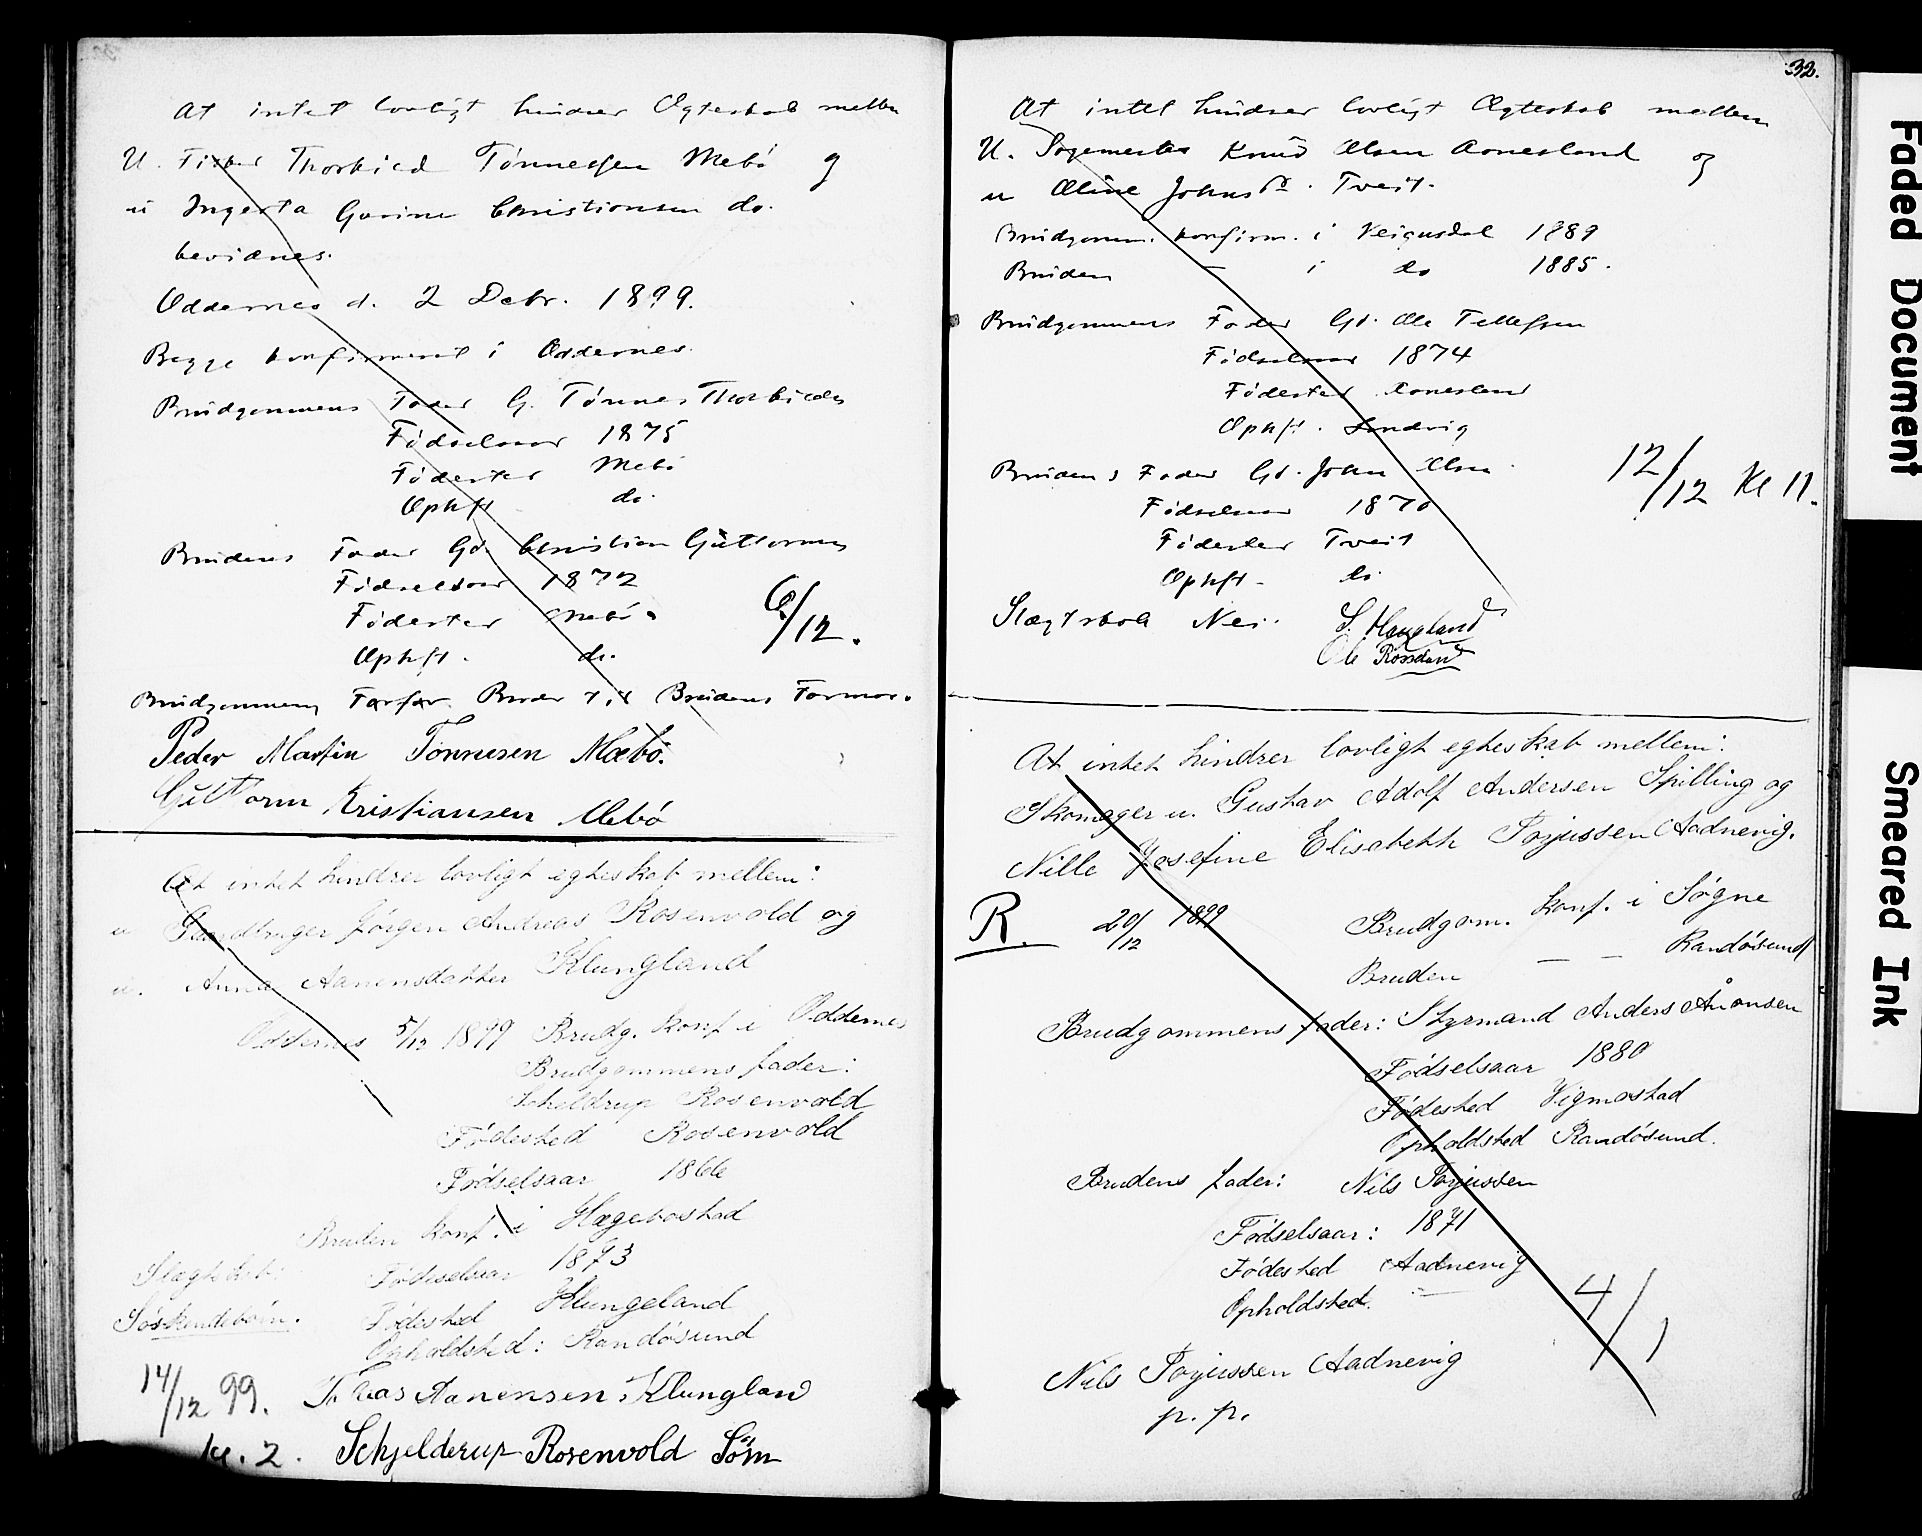 At intet lovligt hindrer Ægteskab mellem
U. Fisker Thorkild Tønnessen Mebø og
u Ingerta Gurine Christiansen do.
bevidnes.
Oddernes d. 2 Debr. 1899.
Begge konfirmeret i Oddernes.
Brudgommens Fader G. Tønnes Thorkilds
Fødselsaar 1875
Fødested Mebø
Ophst do.
Brudens Fader Gd. Christian Guttorms
Fødselsaar 1872
Fødested Mebø
6/12.
Ophst. do.
Brudgommens Farfar Broder til Brudens Farmor.
Peder Martin Tønnesen Mæbø.
Guttorm Kristiansen Mebø
At intet hindrer lovligt egteskab mellem:
u Gaardbruger Jørgen Andreas Rosenvold og
u. Anna Aanensdatter Klungland
Oddernes 5/12 1899 Brudg. konf i Oddernes
Brudgommens fader:
Scheldrup Rosenvold
Fødested Rosenvold
Fødselsaar 1866
Bruden konf. i Hægebostad
Slægtskab: Fødselsaar 1873
Søskendebørn. Fødested Klungeland
Opholdsted: Randøsund
14/12 99. Aanensen Klungland
kl. 2. Schjelderup Rosenvold Sørn
32.
At intet hindrer lovligt Ægteskab mellem
U. Knud Olsen Aonesland og
u Oline Johnsd. Tveit.
Brudgomm. konfirm. i Veigusdal 1889
Bruden — i do 1885.
Brudgommens Fader Gd. Ole Tellefsen
Fødselsaar 1874
Fødested Aonesland
Ophst. Sandvig
Brudens Fader Gd. John Olsen
12/12 Kl 11.
Fødselsaar 1870
Fødested Tveit
Ophst. do.
Slægtskab Nei. S. Haugland
Ole Rossland
At intet hindrer lovligt egteskab mellem:
Skomager u. Gustav Adolf Andersen Spilling og
Nille Josefine Elisabeth Torjussen Aadnevig.
R. 20/12 1899 Brudgom. konf. i Søgne
Bruden — — Randøsund
Brudgommens fader: Styrmand Anders Åvansen
Fødselsaar 1880
Fødested Vigmostad
Opholdsted Randøsund.
Brudens fader: Nils Torjussen
Fødselsaar: 1871
Fødested Aadnevig
Opholdsted. —
4/1
Nils Torjussen Aadnevig
p. p.
Faded Document
Smeared Ink